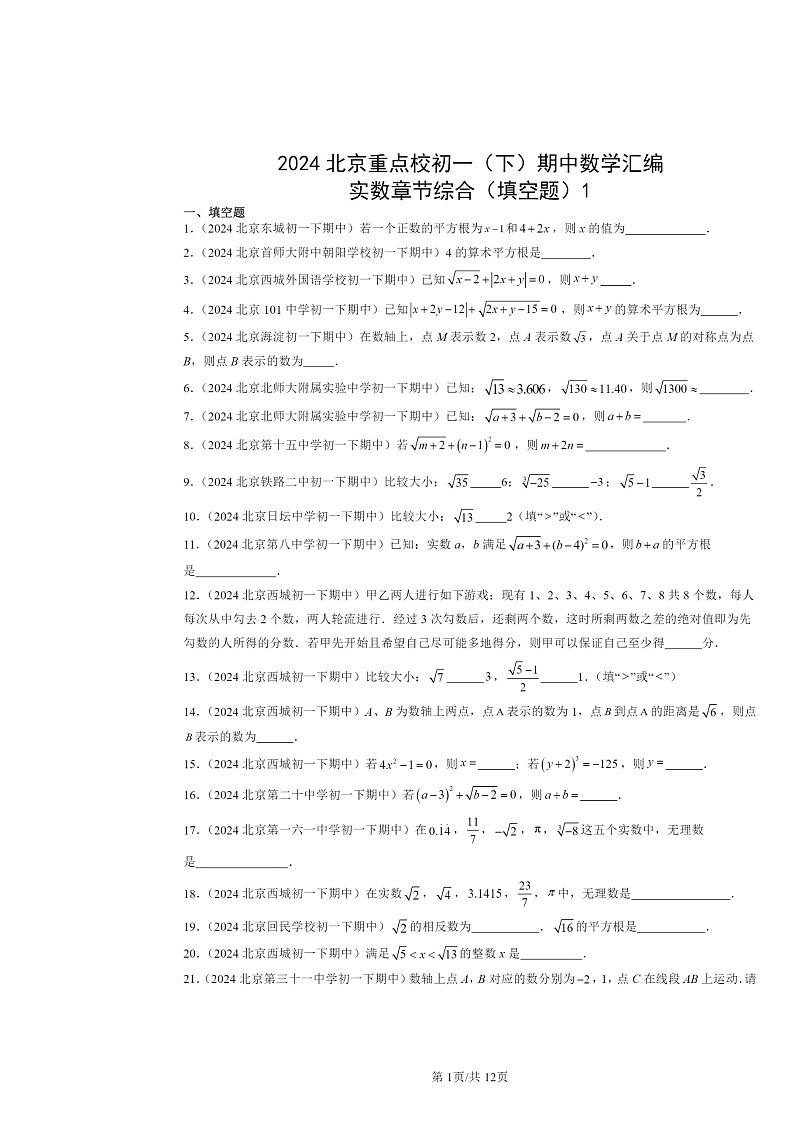 2024 北京重点校初一（下）期中数学汇编
实数章节综合（填空题）1
一、填空题
1.（2024 北京东城初一下期中）若一个正数的平方根为 x−1 和 4+2x，则 x 的值为____________.
2.（2024 北京首师大附中朝阳学校初一下期中）4 的算术平方根是________.
3.（2024 北京西城外国语学校初一下期中）已知 √(x−2)+|2x+y|=0，则 x+y_____.
4.（2024 北京 101 中学初一下期中）已知 |x+2y−12|+√(2x+y−15)=0，则 x+y 的算术平方根为______.
5.（2024 北京海淀初一下期中）在数轴上，点 M 表示数 2，点 A 表示数 √3，点 A 关于点 M 的对称点为点
B，则点 B 表示的数为_____.
6.（2024 北京北师大附属实验中学初一下期中）已知：√13≈3.606，√130≈11.40，则 √1300≈________.
7.（2024 北京北师大附属实验中学初一下期中）已知：√(a+3)+√(b−2)=0，则 a+b=_______.
8.（2024 北京第十五中学初一下期中）若 √(m+2)+(n−1)²=0，则 m+2n=____________.
9.（2024 北京铁路二中初一下期中）比较大小：√35_____6；∛−25______−3；√5−1______√3/2.
10.（2024 北京日坛中学初一下期中）比较大小：√13_____2（填“>”或“<”）.
11.（2024 北京第八中学初一下期中）已知：实数 a，b 满足 √(a+3)+(b−4)²=0，则 b+a 的平方根
是____________.
12.（2024 北京西城初一下期中）甲乙两人进行如下游戏：现有 1、2、3、4、5、6、7、8 共 8 个数，每人
每次从中勾去 2 个数，两人轮流进行．经过 3 次勾数后，还剩两个数，这时所剩两数之差的绝对值即为先
勾数的人所得的分数．若甲先开始且希望自己尽可能多地得分，则甲可以保证自己至少得______分．
13.（2024 北京西城初一下期中）比较大小：√7______3，(√5−1)/2______1.（填“>”或“<”）
14.（2024 北京西城初一下期中）A、B 为数轴上两点，点 A 表示的数为 1，点 B 到点 A 的距离是 √6，则点
B 表示的数为______.
15.（2024 北京西城初一下期中）若 4x²−1=0，则 x=______；若 (y+2)³=−125，则 y=______.
16.（2024 北京第二十中学初一下期中）若 (a−3)²+√(b−2)=0，则 a+b=______.
17.（2024 北京第一六一中学初一下期中）在 0.1̇4̇，11/7，−√2，π，∛−8 这五个实数中，无理数
是_______________.
18.（2024 北京西城初一下期中）在实数 √2，√4，3.1415，23/7，π 中，无理数是________________.
19.（2024 北京回民学校初一下期中）√2 的相反数为___________．√16 的平方根是___________.
20.（2024 北京西城初一下期中）满足 √5<x<√13 的整数 x 是__________.
21.（2024 北京第三十一中学初一下期中）数轴上点 A，B 对应的数分别为 −2，1，点 C 在线段 AB 上运动.请
第 1页/共 12页